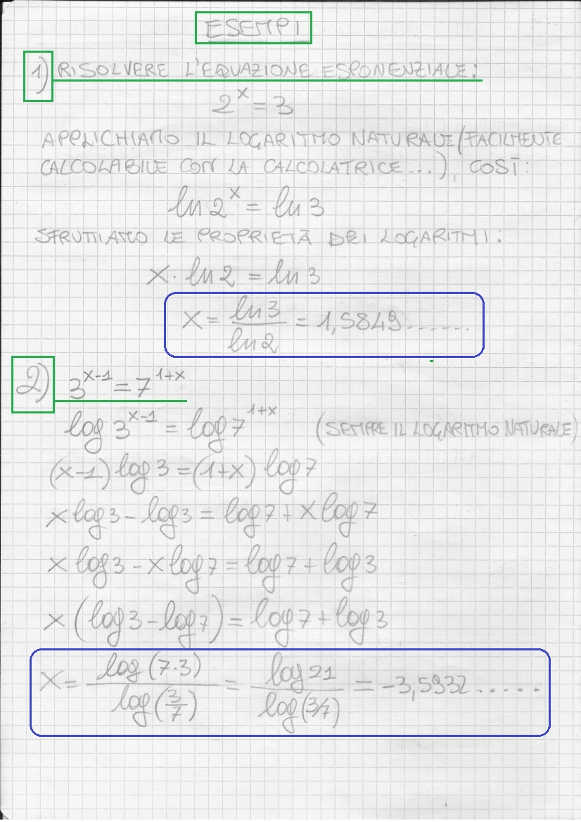 ESEMPI
1) RISOLVERE L'EQUAZIONE ESPONENZIALE:
2^x = 3
APPLICHIAMO IL LOGARITMO NATURALE (FACILMENTE
CALCOLABILE CON LA CALCOLATRICE...), COSÌ:
ln 2^x = ln 3
SFRUTTIAMO LE PROPRIETÀ DEI LOGARITMI.
x · ln 2 = ln 3
x = ln 3 / ln 2 = 1,5849.......
2) 3^(x-1) = 7^(1+x)
log 3^(x-1) = log 7^(1+x) (SEMPRE IL LOGARITMO NATURALE)
(x-1) log 3 = (1+x) log 7
x log 3 - log 3 = log 7 + x log 7
x log 3 - x log 7 = log 7 + log 3
x (log 3 - log 7) = log 7 + log 3
x = log (7·3) / log (3/7) = log 21 / log (3/7) = -3,5932.....